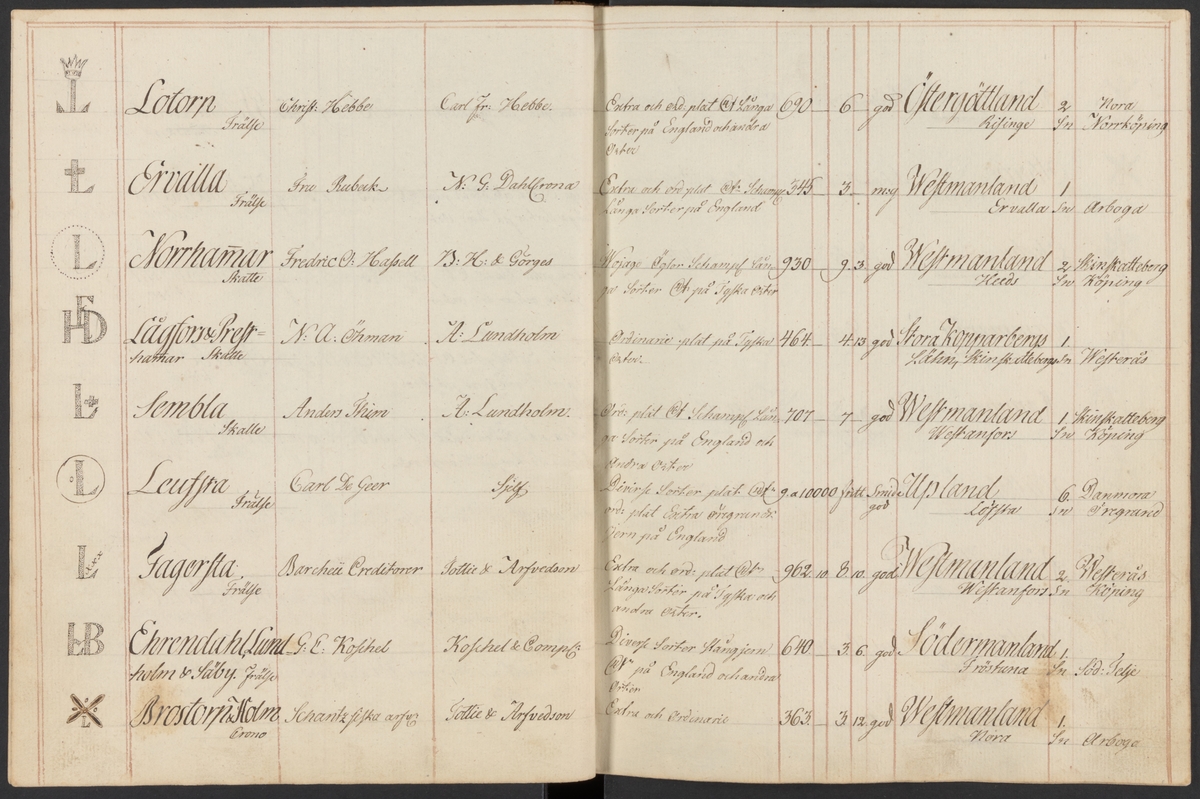 Lotorn Christ: Hebbe Carl Fr: Hebbe. Extra och ord. plat Ct Långa 690 6 god Östergöttland 2 Nora
Frälse Sorter på England och andra Risinge Sn Norrköping
Orter
Ervalla Fru Rubeck N: G. DahlCrona Extra och ord plat Ct Schampl 345 3 Westmanland 1
Frälse Långa Sorter på England Ervalla Sn Arboga
Norrham̅ar Fredric O: Hasell B: H: & Görges Schampl Lån 930 9 3 god Westmanland 2 Skinskatteberg
Skatte ga Sorter Ct på Tyska Orter Heds Sn Köping
Lågfors & Prest= N: A. Öhman A: Lundholm Ordinarie plat på Tyska 464 4 13 god Stora Kopparbergs 1
hamar Skatte Orter Lähn, Skinskatteberg Sn Westerås
Sembla Anders Thim A: Lundholm. Ord: plat Ct Schampl Lån 707 7 god Westmanland 1 Skinskatteberg
Skatte ga Sorter på England och Westanfors Sn Köping
Andra Orter
Leufsta Carl De Geer Sjelf Diverse Sorter plat Ct 9. a 10000 fritt Smide Upland 6. Danmora
Frälse ord: plat Extra Öregrunds god Löfsta Sn Öregrund
Jern på England
Fagersta Barcheü Creditorer Tottie & Arfvedson Extra och ord: plat Ct 962 10 8 10 god Westmanland 2 Westerås
Frälse Långa Sorter på Tyska och Westanfors Sn Köping
andra Orter.
Ehrendahl, Lund G: E: Koschel Koschel & Comp: Diverse Sorter Stångjern 640 3 6 god Södermanland 1.
holm & Säby. Frälse Ct på England och andra Fröstuna Sn Söd: Telje
Orter
Brostorp, Holm Schantz arfv Tottie & Arfvedson Extra och Ordinarie 363 3 12 god Westmanland 1.
Crono Nora Sn Arboga